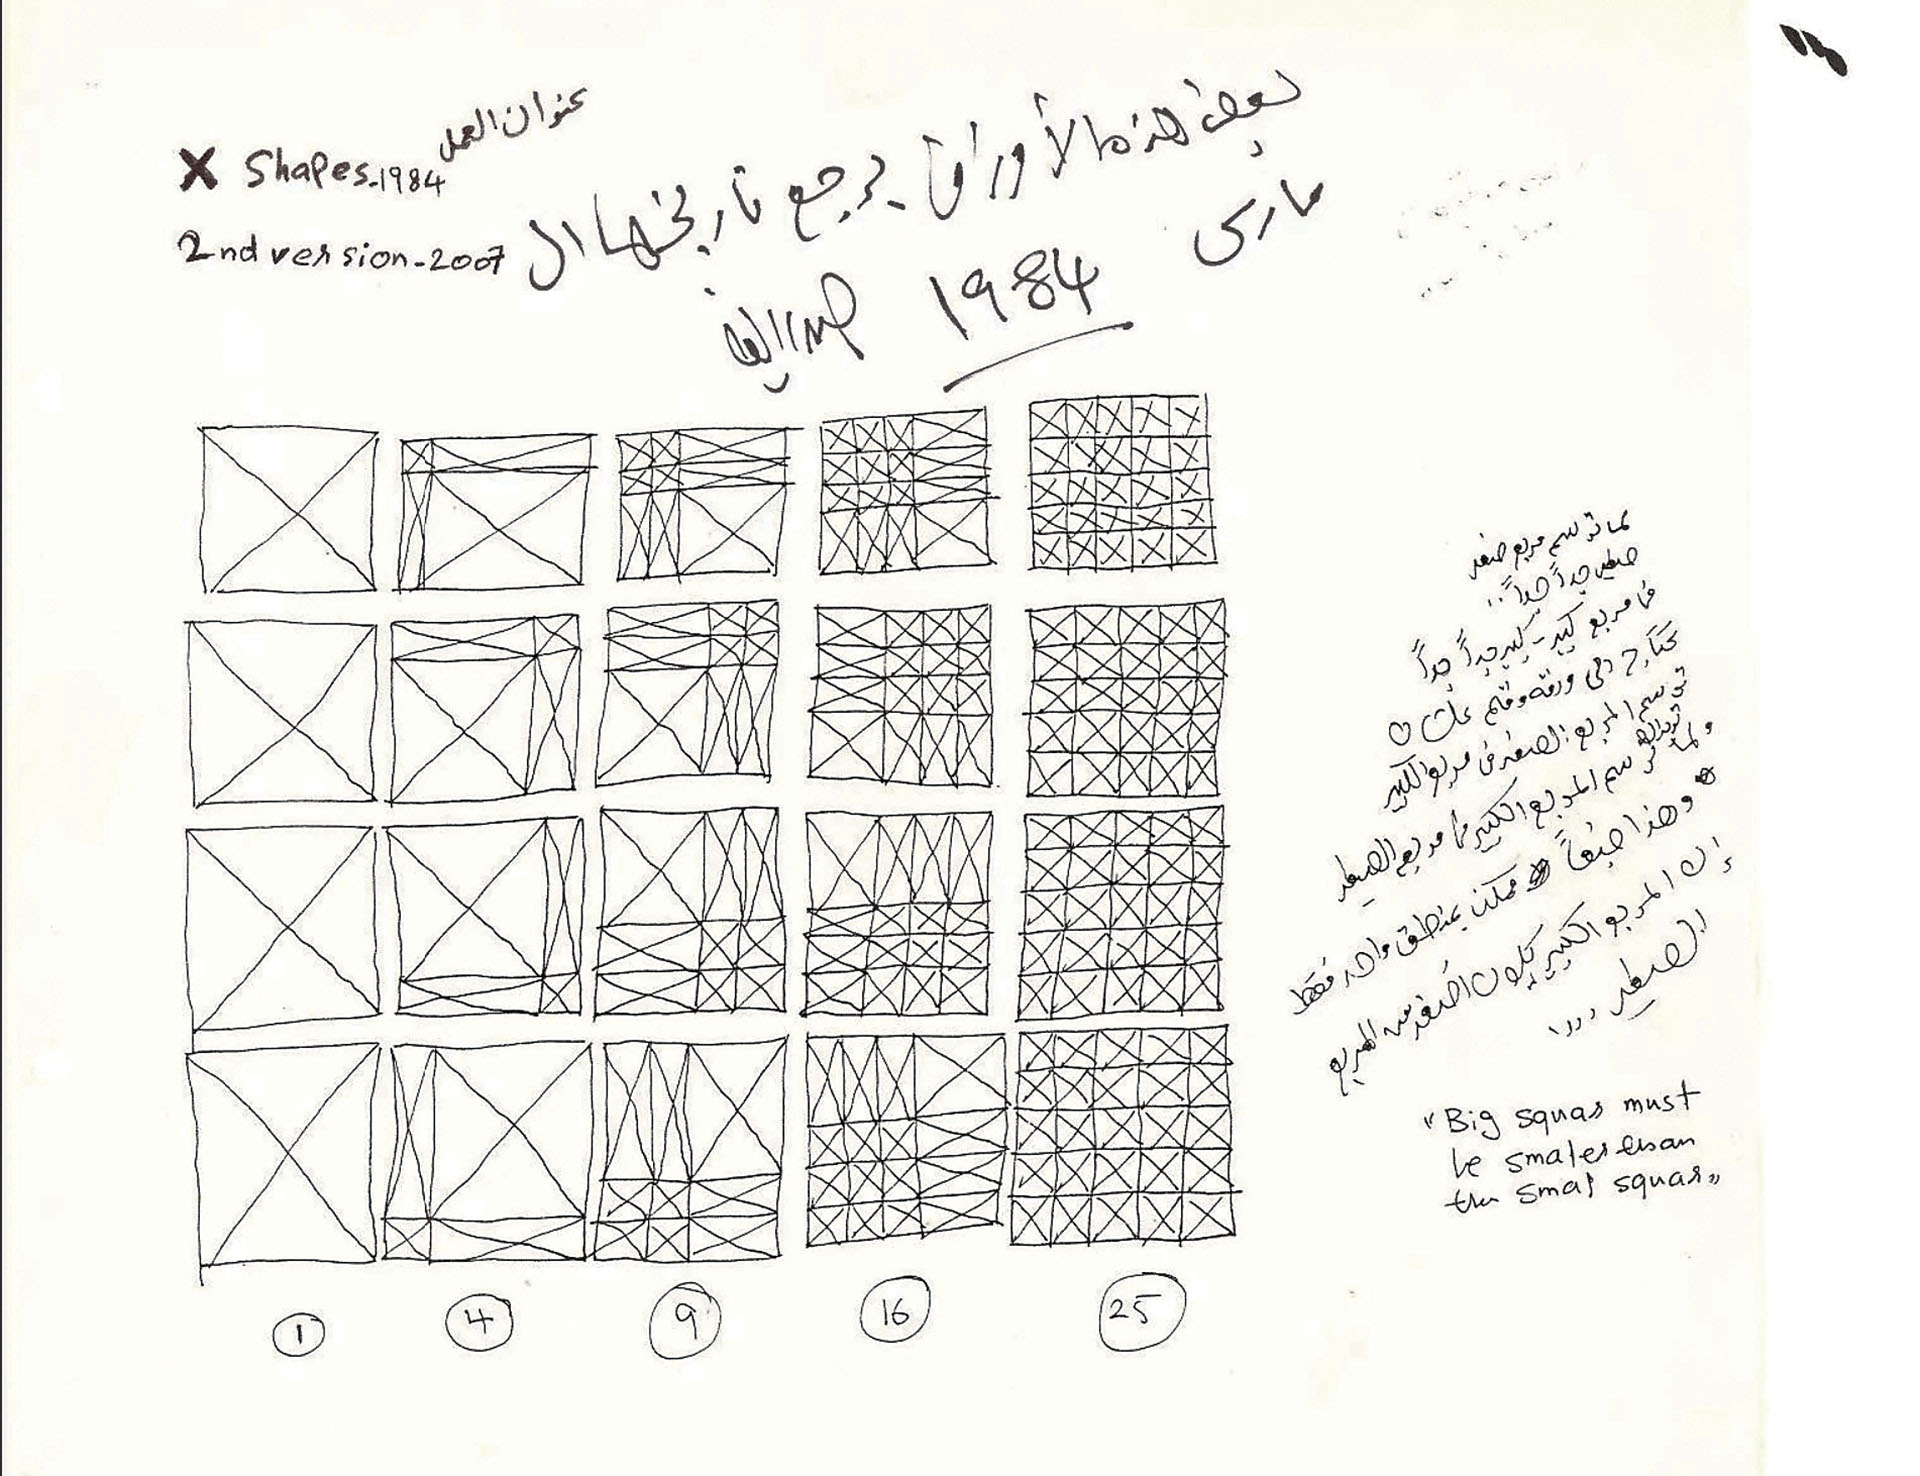 عنوان العمل
X Shapes-1984
2nd version-2007
بعض هذه الأوراق يرجع تاريخها ال
مارس
1984
لما ترسم مربع صغير
صغير جداً جداً..
في مربع كبير - كبير جداً جداً
تحتاج الى ورقة وقلم
ترسم المربع الصغير في مربع الكبير
ولما ترسم المربع الكبير في مربع الصغير
وهذا طبعاً ممكن بمنطق واحد فقط
إن المربع الكبير يكون أصغر من المربع
الصغير
"Big squar must
be smaler than
the smal squar"
1 4 9 16 25